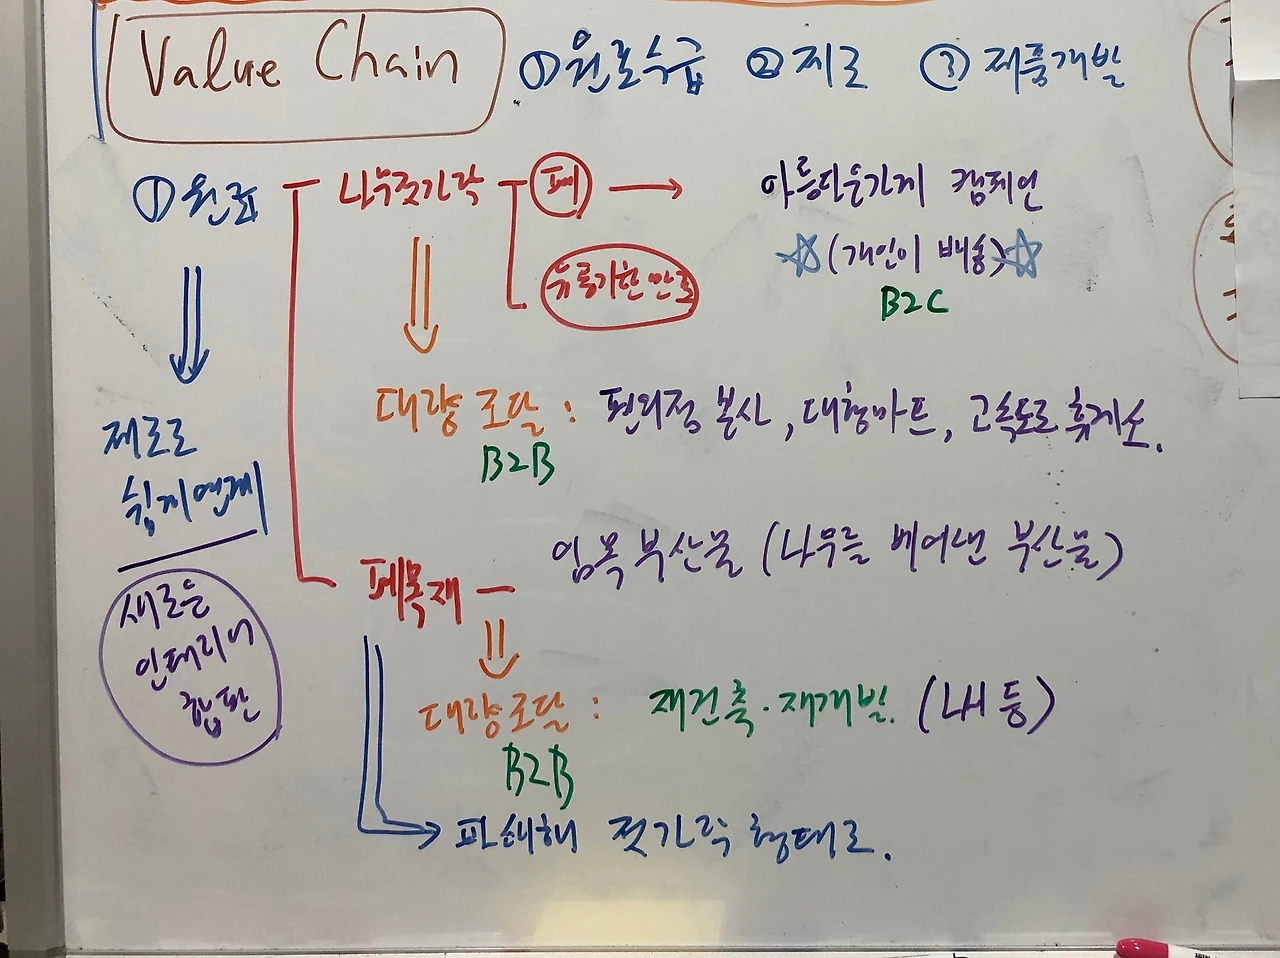 Value Chain ①원료수급 ②재료 ③제품개발
①원료 나무젓가락 폐 → 아름다운가게 캠페인
☆(개인이 배송)☆
유통기한 만료
B2C
대량 조달 : 편의점 본사, 대형마트, 고속도로 휴게소.
B2B
재료로
쉽게 연계
임목 부산물 (나무를 베어낸 부산물)
폐목재
새로운
인테리어
합판
대량조달 : 재건축·재개발. (LH 등)
B2B
파쇄해 젓가락 형태로.